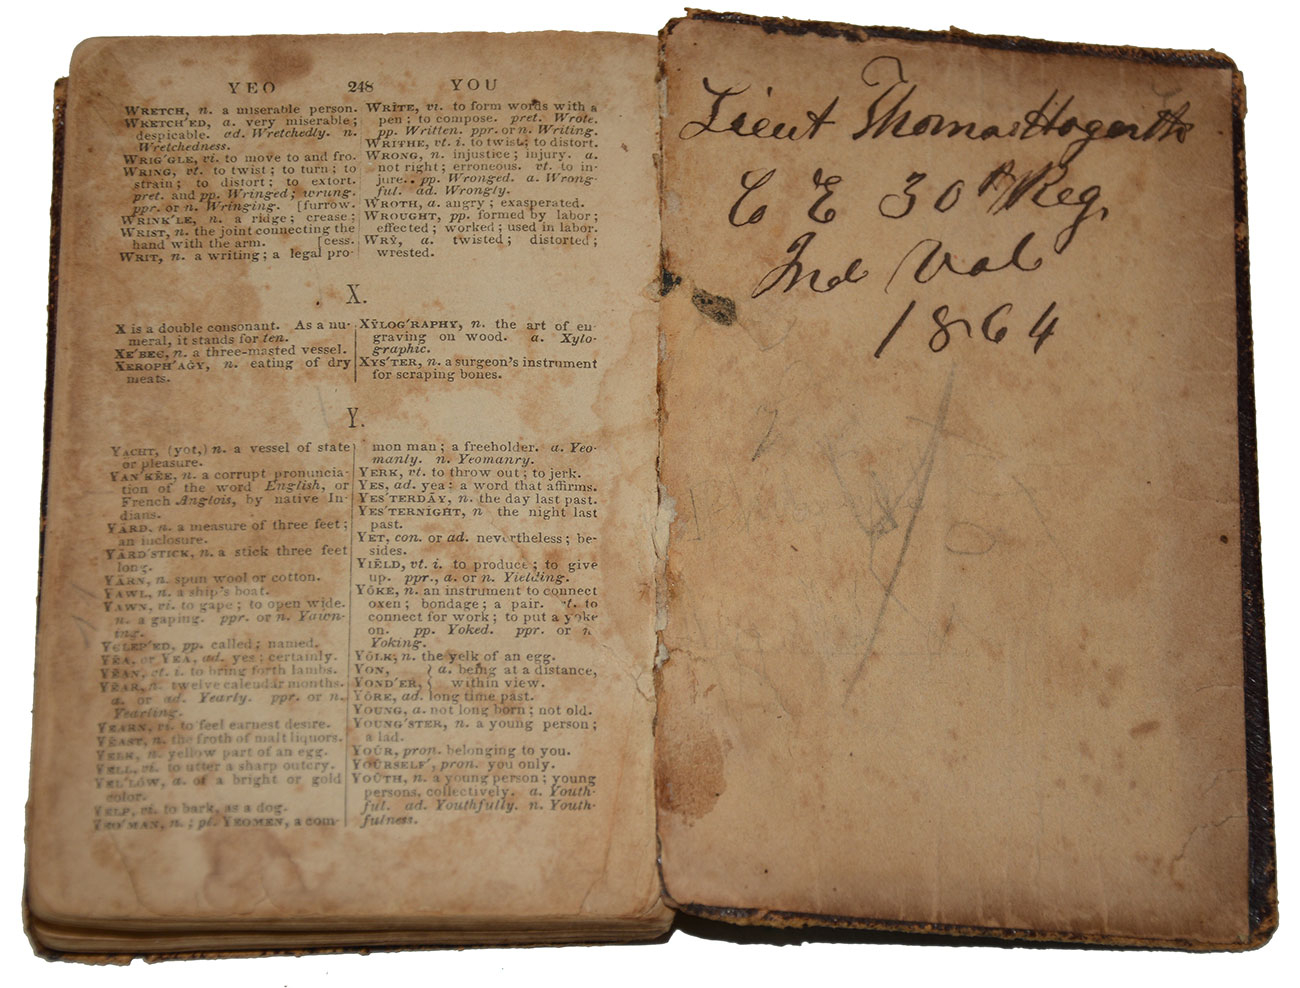 YEO 248 YOU
WRETCH, n. a miserable person.
WRETCH'ED, a. very miserable;
despicable. ad. Wretchedly. n.
Wretchedness.
WRIG'GLE, vi. to move to and fro.
WRING, vt. to twist; to turn; to
strain; to distort; to extort.
pret. and pp. Wringed; wrung.
ppr. or n. Wringing. [furrow.
WRINK'LE, n. a ridge; crease;
WRIST, n. the joint connecting the
hand with the arm. [cess.
WRIT, n. a writing; a legal pro-
WRITE, vi. to form words with a
pen; to compose. pret. Wrote.
pp. Written. ppr. or n. Writing.
WRITHE, vt. i. to twist; to distort.
WRONG, n. injustice; injury. a.
not right; erroneous. vt. to in-
jure. pp. Wronged. a. Wrong-
ful. ad. Wrongly.
WROTH, a. angry; exasperated.
WROUGHT, pp. formed by labor;
effected; worked; used in labor.
WRȲ, a. twisted; distorted;
wrested.
X.
X is a double consonant. As a nu-
meral, it stands for ten.
XE'BEC, n. a three-masted vessel.
XEROPH'AGY, n. eating of dry
meats.
XȲLOG'RAPHY, n. the art of en
graving on wood. a. Xylo-
graphic.
XYS'TER, n. a surgeon's instrument
for scraping bones.
Y.
YACHT, (yot,) n. a vessel of state
or pleasure.
YAN'KEE, n. a corrupt pronuncia-
tion of the word English, or
French Anglois, by native In-
dians.
YÄRD, n. a measure of three feet;
an inclosure.
YÄRD'STICK, n. a stick three feet
long.
YÄRN, n. spun wool or cotton.
YAWL, n. a ship's boat.
YAWN, vi. to gape; to open wide.
n. a gaping. ppr. or n. Yawn-
ing.
YCLEP'ED, pp. called; named.
YEA, or YEA, ad. yes; certainly.
YEAN, vt. i. to bring forth lambs.
YEAR, n. twelve calendar months.
a. or ad. Yearly. ppr. or n.
Yearling.
YEARN, vi. to feel earnest desire.
YEAST, n. the froth of malt liquors.
YELK, n. yellow part of an egg.
YELL, vi. to utter a sharp outcry.
YEL'LOW, a. of a bright or gold
color.
YELP, vi. to bark, as a dog.
YEO'MAN, n.; pl. YEOMEN, a com-
mon man; a freeholder. a. Yeo-
manly. n. Yeomanry.
YERK, vt. to throw out; to jerk.
YES, ad. yea: a word that affirms.
YES'TERDĀY, n. the day last past.
YES'TERNIGHT, n the night last
past.
YET, con. or ad. nevertheless; be-
sides.
YIELD, vt. i. to produce; to give
up. ppr., a. or n. Yielding.
YŌKE, n. an instrument to connect
oxen; bondage; a pair. vt. to
connect for work; to put a yoke
on. pp. Yoked. ppr. or n
Yoking.
YŌLK, n. the yelk of an egg.
YON, } a. being at a distance,
YOND'ER, } within view.
YŌRE, ad. long time past.
YOUNG, a. not long born; not old.
YOUNG'STER, n. a young person;
a lad.
YOUR, pron. belonging to you.
YOURSELF', pron. you only.
YOUTH, n. a young person; young
persons, collectively. a. Youth-
ful. ad. Youthfully. n. Youth-
fulness.
Lieut Thomas Hogarth
Co E 30th Reg.
Ind Vol
1864